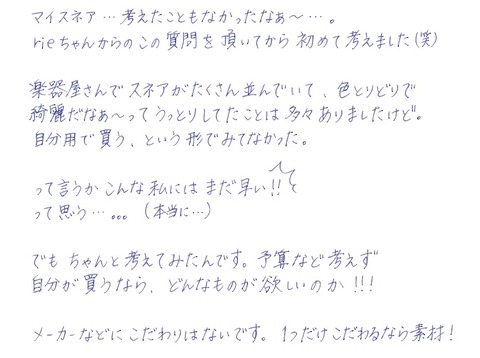 マイスネア…考えたこともなかったなぁ〜…。
rieちゃんからのこの質問を頂いてから初めて考えました(笑)
楽器屋さんでスネアがたくさん並んでいて、色とりどりで
綺麗だなぁ〜ってうっとりしてたことは多々ありましたけど。
自分用で買う、という形でみてなかった。
って言うかこんな私にはまだ早い!!
って思う…。。。(本当に…)
でもちゃんと考えてみたんです。予算など考えず
自分が買うなら、どんなものが欲しいのか!!!
メーカーなどにこだわりはないです。1つだけこだわるなら素材!